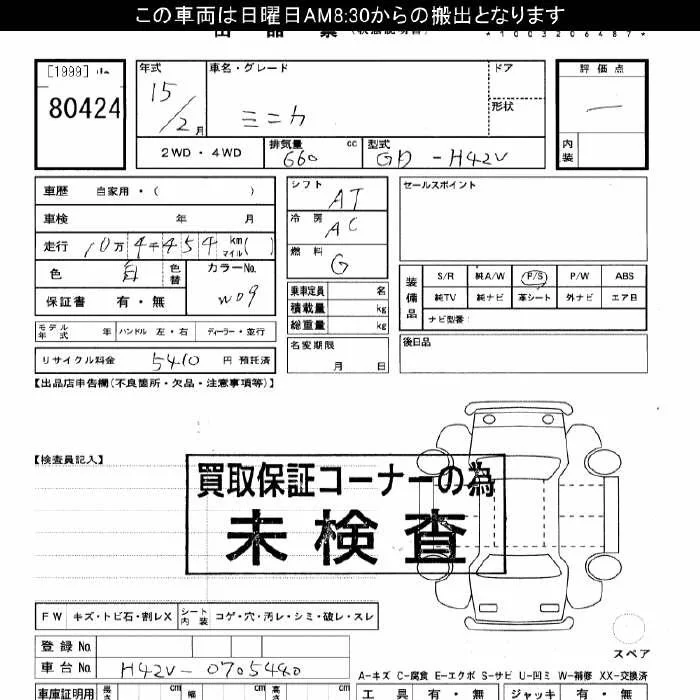 この車両は日曜日AM8:30からの搬出となります
出 品 票
*1003206487*
[1999]
80424
年式 15/2月
車名・グレード ミニカ
ドア
形状
評価点 —
内装
2WD・4WD
排気量 660 cc
型式 GD -H42V
車歴 自家用・( )
車検 年 月
走行 10万4千454 km マイル( )
色 白 色替 カラーNo. W09
保証書 有・無
モデル年式 年 ハンドル 左・右 ディーラー・並行
リサイクル料金 5410 円 預託済
シフト AT
冷房 AC
燃料 G
乗車定員 名
積載量 kg
総重量 kg
名変期限 月 日
セールスポイント
装備品
S/R 純A/W P/S P/W ABS
純TV 純ナビ 革シート 外ナビ エア日
ナビ型番:
後日品
【出品店申告欄(不良箇所・欠品・注意事項等)】
【検査員記入】
買取保証コーナーの為
未検査
FW キズ・トビ石・割レX シート内装 コゲ・穴・汚レ・シミ・破レ・スレ
スペア
登録No.
車台No. H42V-0705440
A-キズ C-腐食 E-エクボ S-サビ U-凹ミ W-補修 XX-交換済
車庫証明用 長さ cm 幅 cm 高さ cm
工具 有・無 ジャッキ 有・無